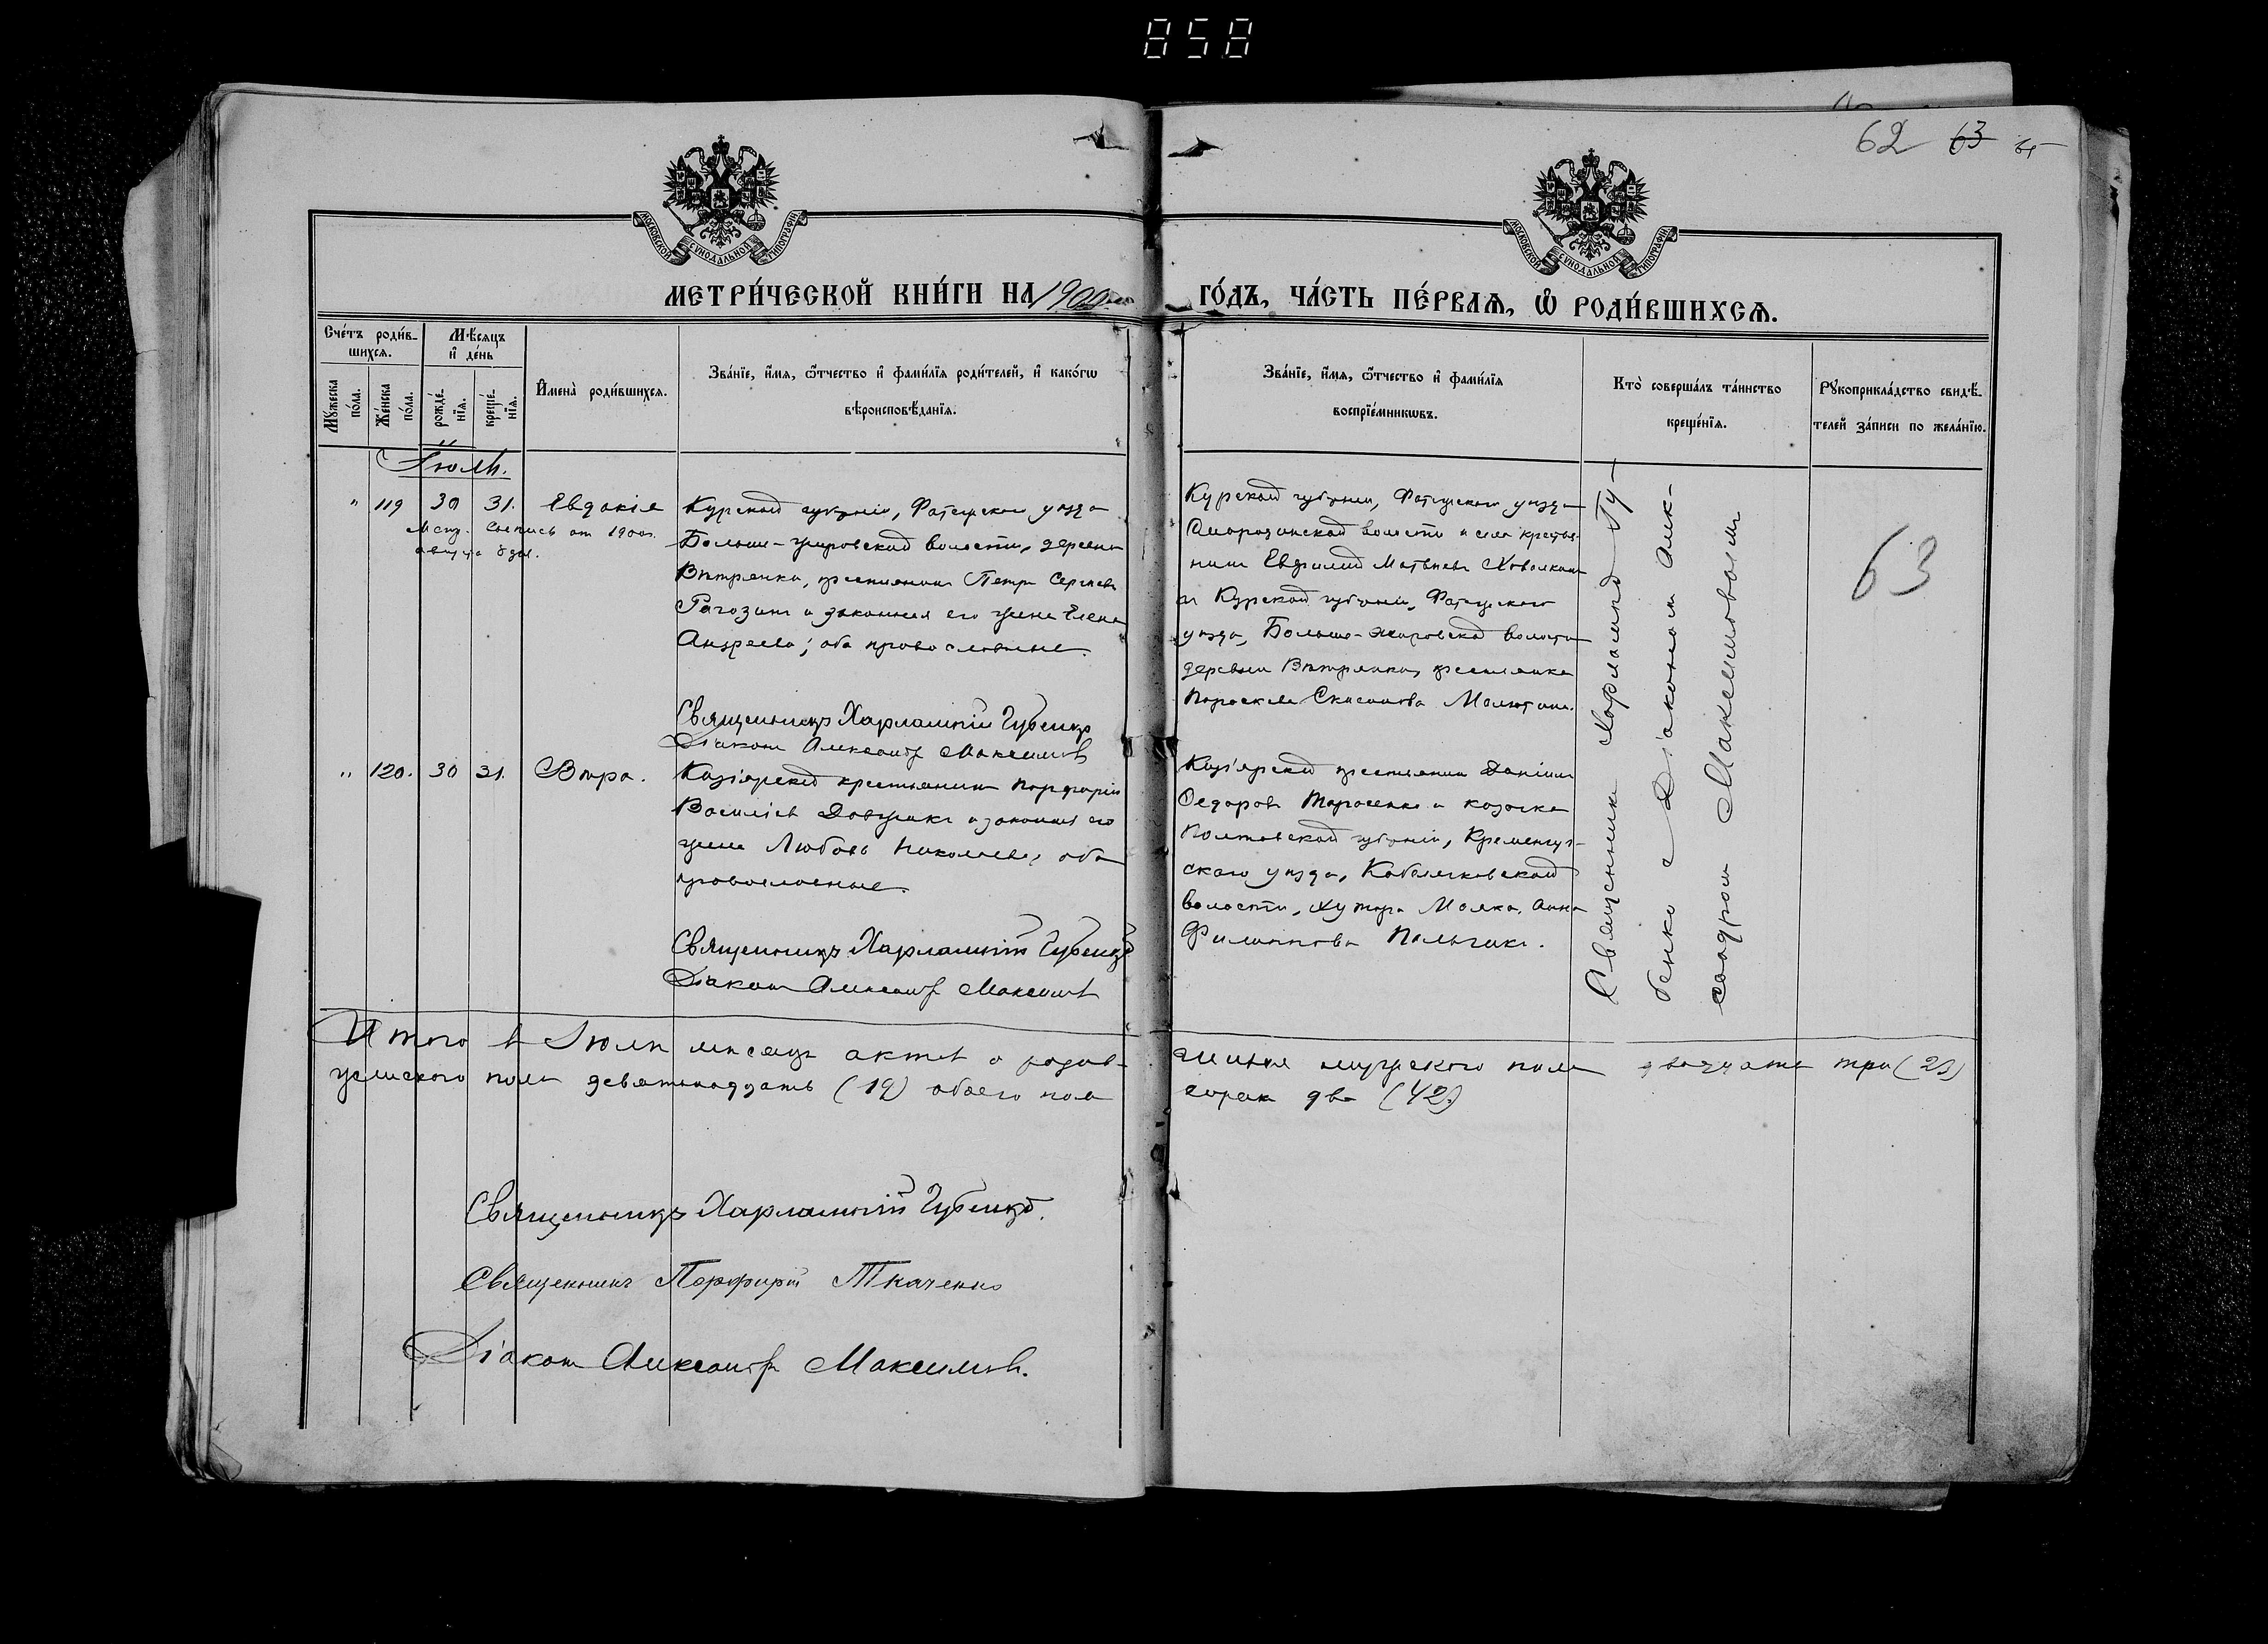 858
62 63 64
МОСКОВСКОЙ СѴНОДАЛЬНОЙ ТИПОГРАФІИ
МОСКОВСКОЙ СѴНОДАЛЬНОЙ ТИПОГРАФІИ
МЕТРИ́ЧЕСКОЙ КНИ́ГИ НА 1900 ГО́ДЪ, ЧА́СТЬ ПЕ́РВАѦ, Ѡ҆ РОДИ́ВШИХСѦ.
Сче́тъ роди́в-
шихсѧ.
Мꙋ́жеска по́ла.
Же́нска по́ла.
Мѣ́сѧцъ
и҆ де́нь
рожде́-
нїѧ.
креще́-
нїѧ.
И҆мена̀ роди́вшихсѧ.
Зва́нїе, и҆́мѧ, ѻ҆́тчество и҆ фами́лїѧ роди́телей, и҆ како́гѡ
вѣроисповѣ́данїѧ.
Зва́нїе, и҆́мѧ, ѻ҆́тчество и҆ фами́лїѧ
воспрїе́мникѡвъ.
Кто̀ соверша́лъ та́инство
креще́нїѧ.
Рꙋкоприкла́дство свидѣ́-
телей за́писи по жела́нїю.
Іюль.
" 119 30 31. Евдокія
от 1900г.
августа
Курской губерніи, Фатежскаго уѣзда
Больше-Жировской волости, деревни
Вѣтренка, крестьянинъ Петръ Сергѣевъ
Рагозинъ и законная его жена Елена
Андреева; оба православные.
Священникъ Харлампій Губенко
Діаконъ Александръ Максимовъ
Курской губерніи, Фатежскаго уѣзда
волости и села крестья-
нинъ Матвѣевъ
и Курской губерніи, Фатежскаго
уѣзда, Больше-Жировской волости
деревни Вѣтренка, крестьянка
Параскева Малютина.
Священникъ Харлампій Гу-
бенко с Діакономъ Алек-
сандромъ Максимовымъ
63
" 120. 30 31. Вѣра.
крестьянинъ Порфирій
Василіевъ Довженко и законная его
жена Любовь Николаева, оба
православные.
Священникъ Харлампій Губенко
Діаконъ Александръ Максимовъ
крестьянинъ Даніилъ
Федоровъ Тарасенко и козачка
Полтавской губерніи, Кременчуг-
скаго уѣзда, волости, хутора Анна
Филиппова
Итого в Іюлѣ мѣсяцѣ актов о родив- шихся мужского пола двадцать три (23)
женского пола девятнадцать (19) обоего пола сорок два (42)
Священникъ Харлампій Губенко.
Священникъ Порфирій Ткаченко
Діаконъ Александръ Максимовъ.